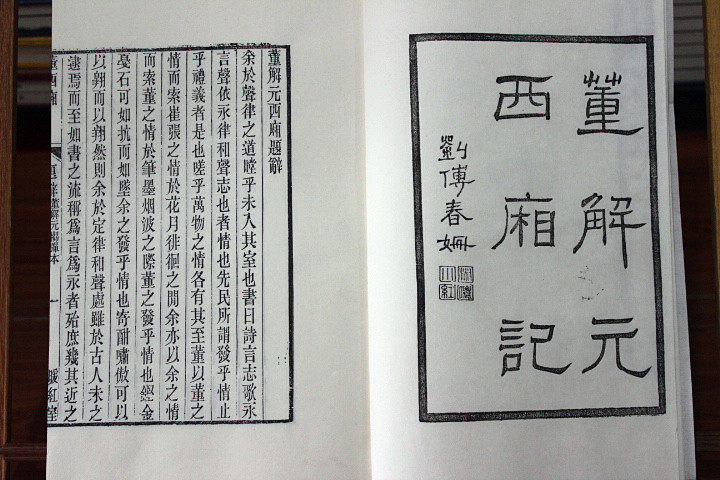 董解元
西廂記
劉傅春姍
董解元西廂題辭
余於聲律之道瞠乎未入其室也書曰詩言志歌永
言聲依永律和聲志也者情也先民所謂發乎情止
乎禮義者是也嗟乎萬物之情各有其至董以董之
情而索崔張之情於花月徘徊之閒余亦以余之情
而索董之情於筆墨烟波之際董之發乎情也鏗金
戞石可如抗而如墜余之發乎情也寄酣嘯傲可以
以翱而以翔然則余於定律和聲處雖於古人未之
逮焉而至如書之流稱爲言爲永者殆庶幾其近之
董西廂
董解元搊彈本
一
暖紅室